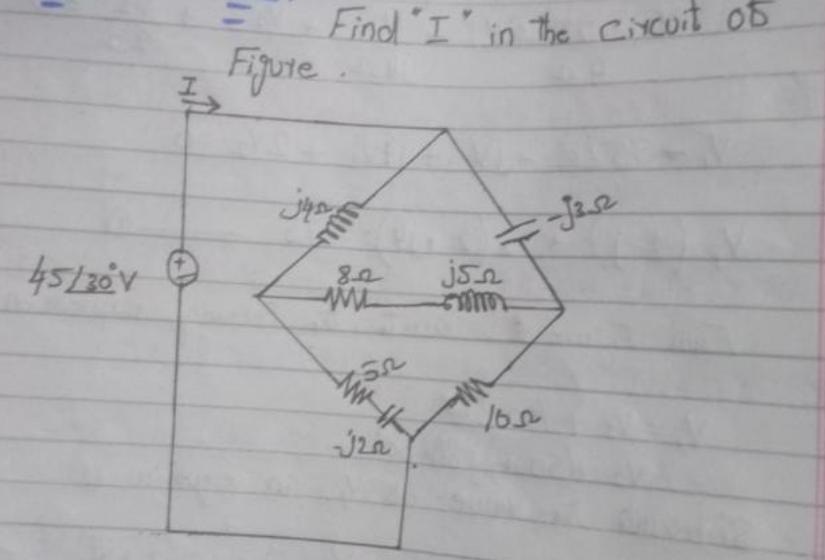 Find "I" in the circuit of
Figure.
I
j4Ω
-j3Ω
8Ω j5Ω
45∠30°V
5Ω
10Ω
-j2Ω